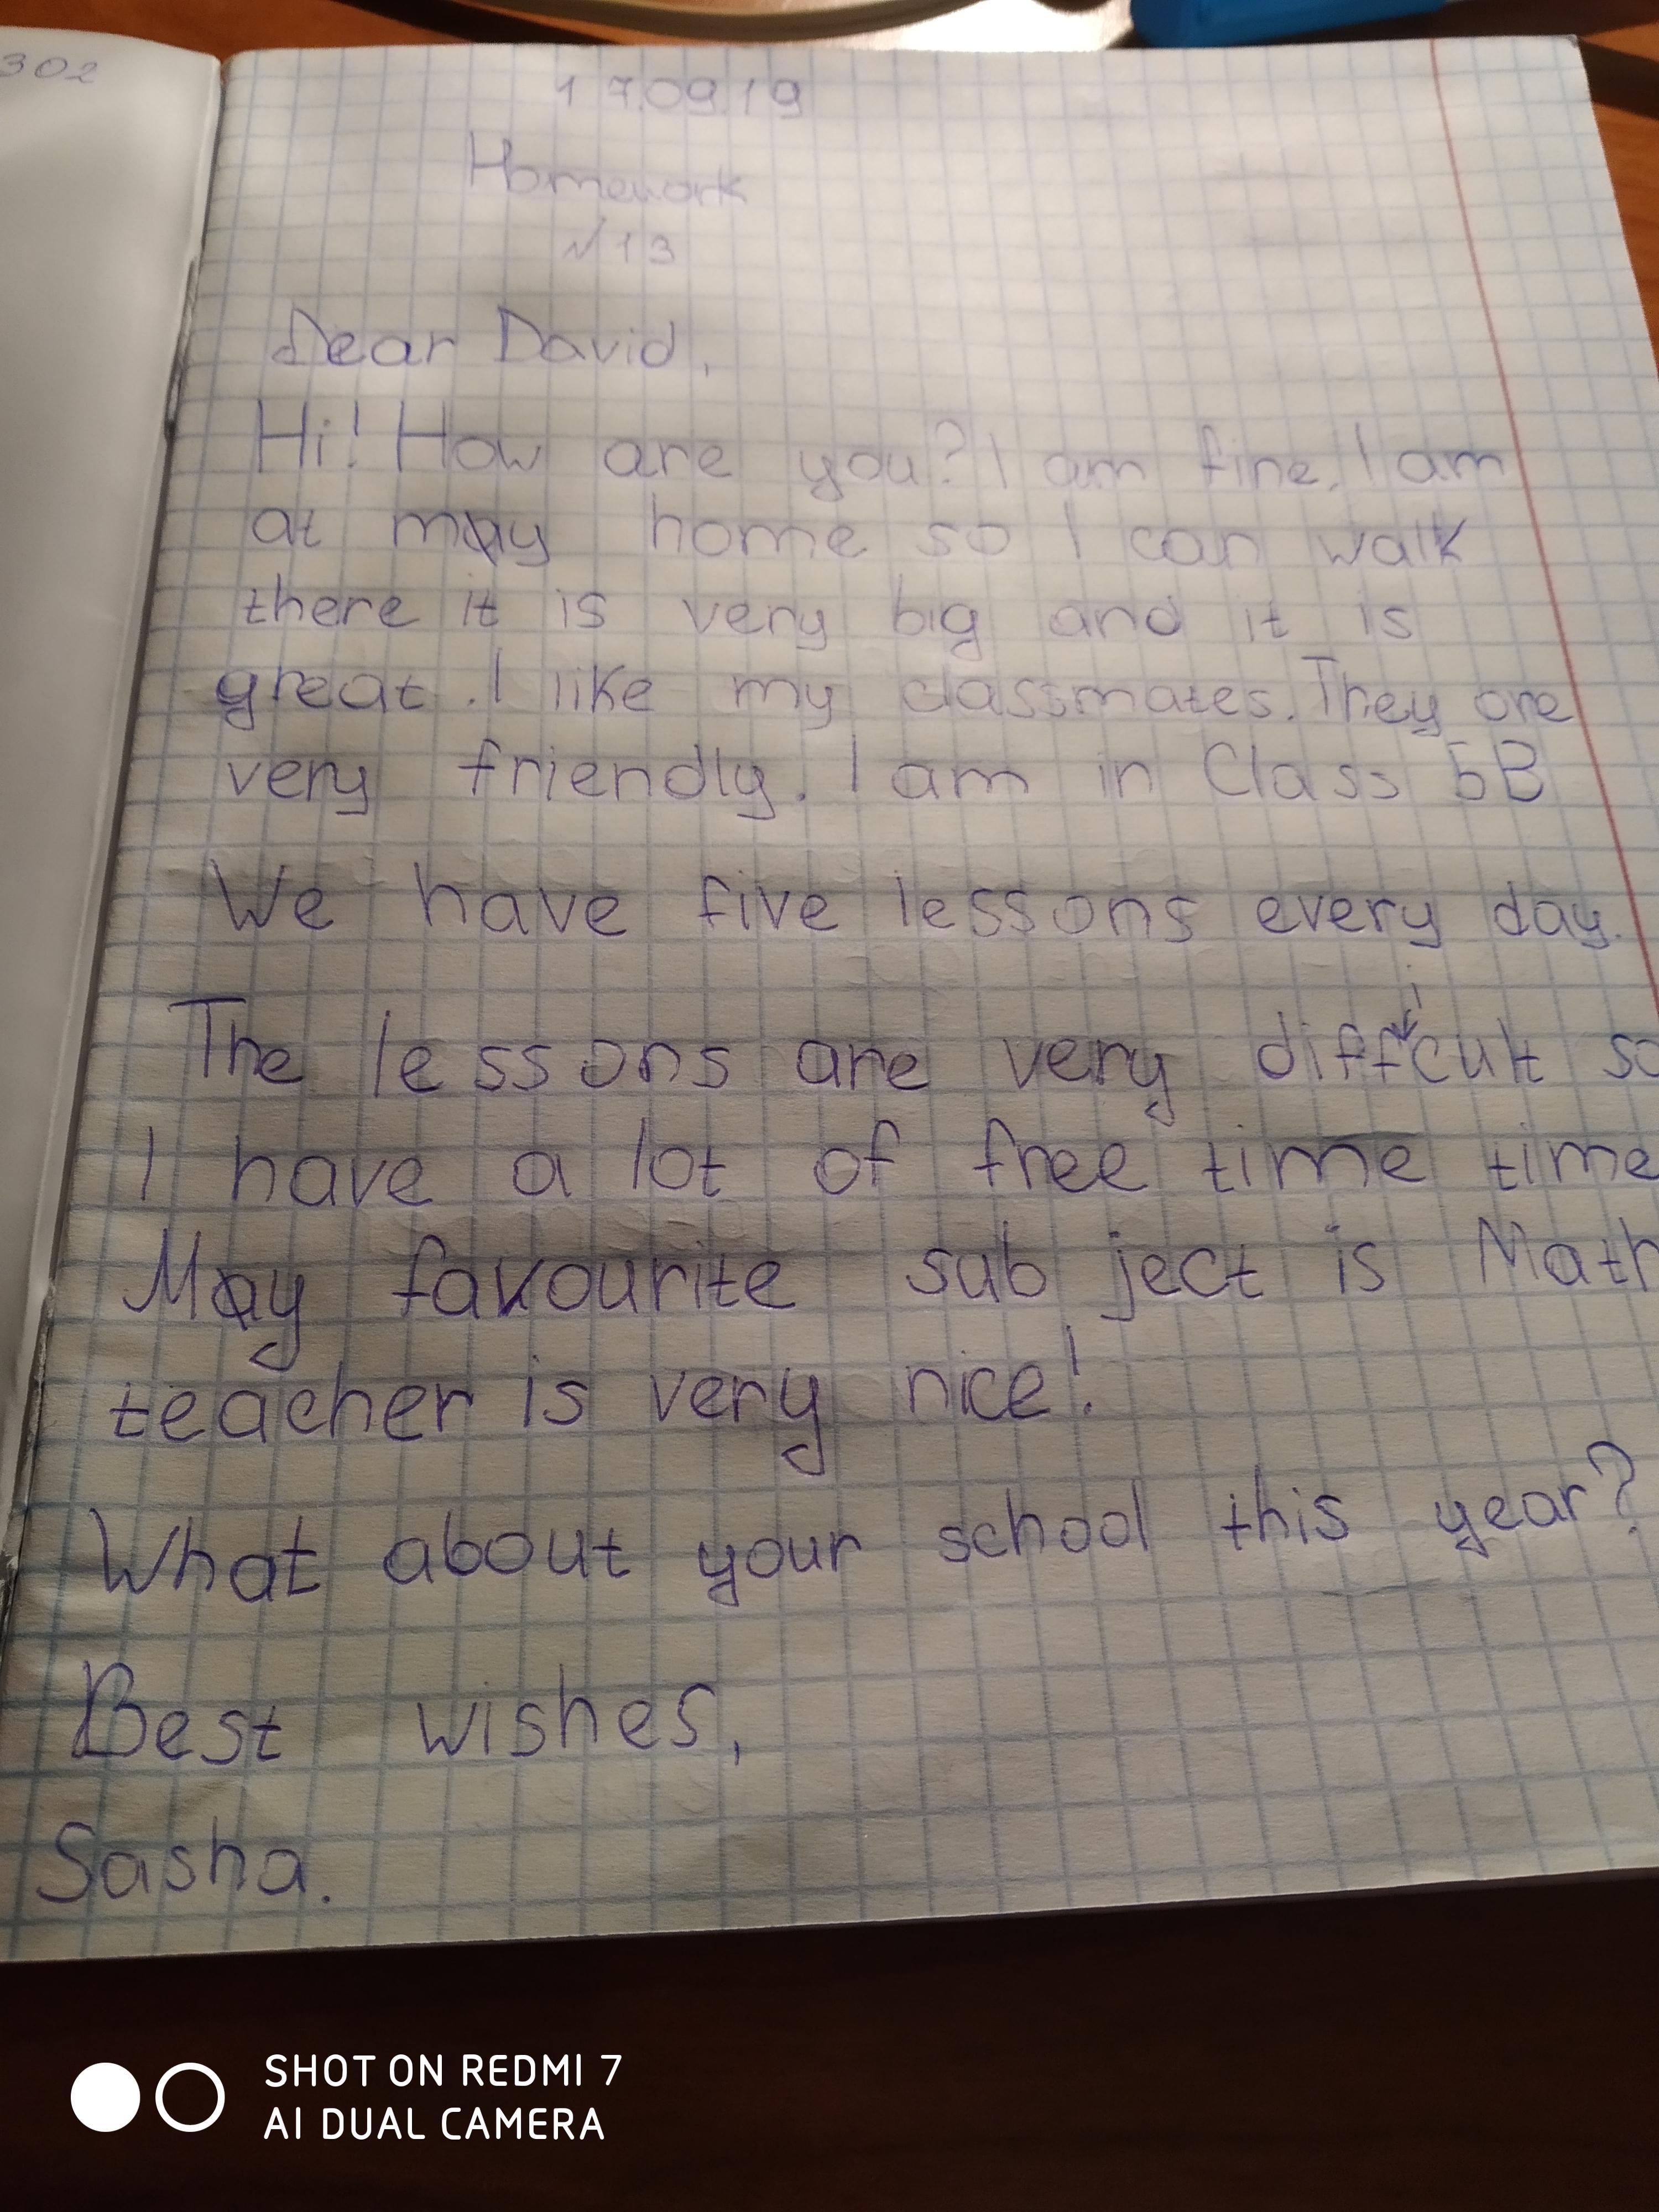 302
17.09.19
Homework
№13
Dear David,
Hi! How are you? I am fine. I am
at my home so I can walk
there it is very big and it is
great. I like my classmates. They are
very friendly. I am in Class 5B
We have five lessons every day.
The lessons are very difficult so
I have a lot of free time time
My favourite subject is Math
teacher is very nice!
What about your school this year?
Best wishes,
Sasha.
SHOT ON REDMI 7
AI DUAL CAMERA